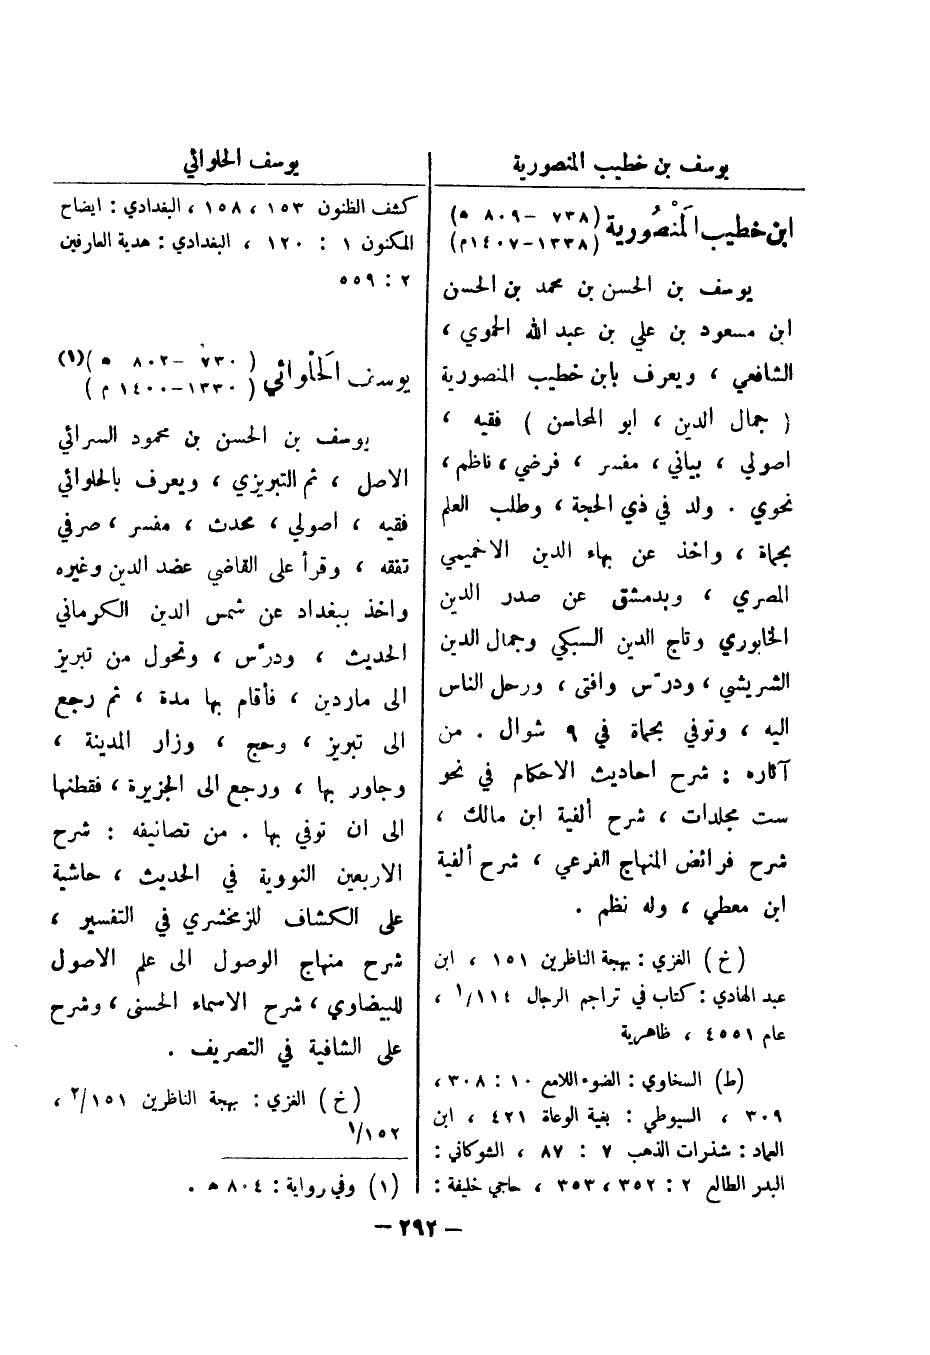 يوسف بن خطيب المنصورية
ابن خطيب المَنْصُورية (٧٣٨ – ٨٠٩ ه)
(١٣٣٨–١٤٠٧م)
يوسف بن الحسن بن محمد بن الحسن
ابن مسعود بن علي بن عبد الله الحموي ،
الشافعي ، ويعرف بابن خطيب المنصورية
( جمال الدين ، ابو المحاسن ) فقيه ،
اصولي ، بياني ، مفسر ، فرضي ، ناظم ،
نحوي . ولد في ذي الحجة ، وطلب العلم
بحماة ، واخذ عن بهاء الدين الاخميمي
المصري ، وبدمشق عن صدر الدين
الخابوري وتاج الدين السبكي وجمال الدين
الشريشي ، ودرّس وافتى ، ورحل الناس
اليه ، وتوفي بحماة في ٩ شوال . من
آثاره : شرح احاديث الاحكام في نحو
ست مجلدات ، شرح ألفية ابن مالك ،
شرح فرائض المنهاج الفرعي ، شرح ألفية
ابن معطي ، وله نظم .
(خ) الغزي : بهجة الناظرين ١٥١ ، ابن
عبد الهادي : كتاب في تراجم الرجال ١١٤/١ ،
عام ٤٥٥١ ، ظاهرية
(ط) السخاوي : الضوء اللامع ١٠ : ٣٠٨ ،
٣٠٩ ، السيوطي : بغية الوعاة ٤٢١ ، ابن
العماد : شذرات الذهب ٧ : ٨٧ ، الشوكاني :
البدر الطالع ٢ : ٣٥٢ ، ٣٥٣ ، حاجي خليفة :
يوسف الحلوائي
كشف الظنون ١٥٣ ، ١٥٨ ، البغدادي : ايضاح
المكنون ١ : ١٢٠ ، البغدادي : هدية العارفين
٢ : ٥٥٩
يوسف الحَلْوائي ( ٧٣٠ – ٨٠٢ ه )(١)
( ١٣٣٠–١٤٠٠ م )
يوسف بن الحسن بن محمود السرائي
الاصل ، ثم التبريزي ، ويعرف بالحلوائي
فقيه ، اصولي ، محدث ، مفسر ، صرفي
تفقه ، وقرأ على القاضي عضد الدين وغيره
واخذ ببغداد عن شمس الدين الكرماني
الحديث ، ودرّس ، وتحول من تبريز
الى ماردين ، فأقام بها مدة ، ثم رجع
الى تبريز ، وحج ، وزار المدينة ،
وجاور بها ، ورجع الى الجزيرة ، فقطنها
الى ان توفي بها . من تصانيفه : شرح
الاربعين النووية في الحديث ، حاشية
على الكشاف للزمخشري في التفسير ،
شرح منهاج الوصول الى علم الاصول
للبيضاوي ، شرح الاسماء الحسنى ، وشرح
على الشافية في التصريف .
(خ) الغزي : بهجة الناظرين ١٥١/٢ ،
١٥٢/١
(١) وفي رواية : ٨٠٤ ه .
– ٢٩٢ –